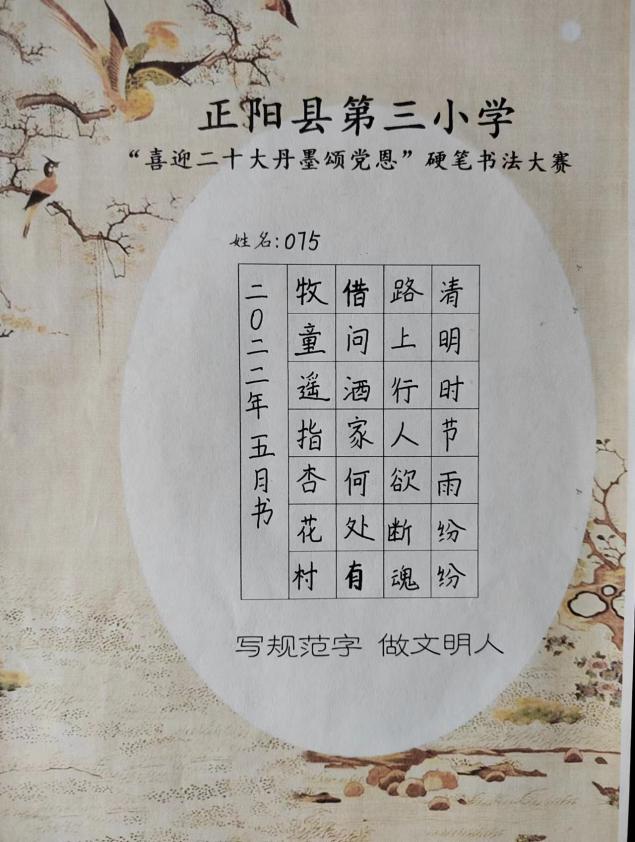 正阳县第三小学
“喜迎二十大丹墨颂党恩”硬笔书法大赛
姓名:075
清明时节雨纷纷
路上行人欲断魂
借问酒家何处有
牧童遥指杏花村
二0二二年五月书
写规范字 做文明人